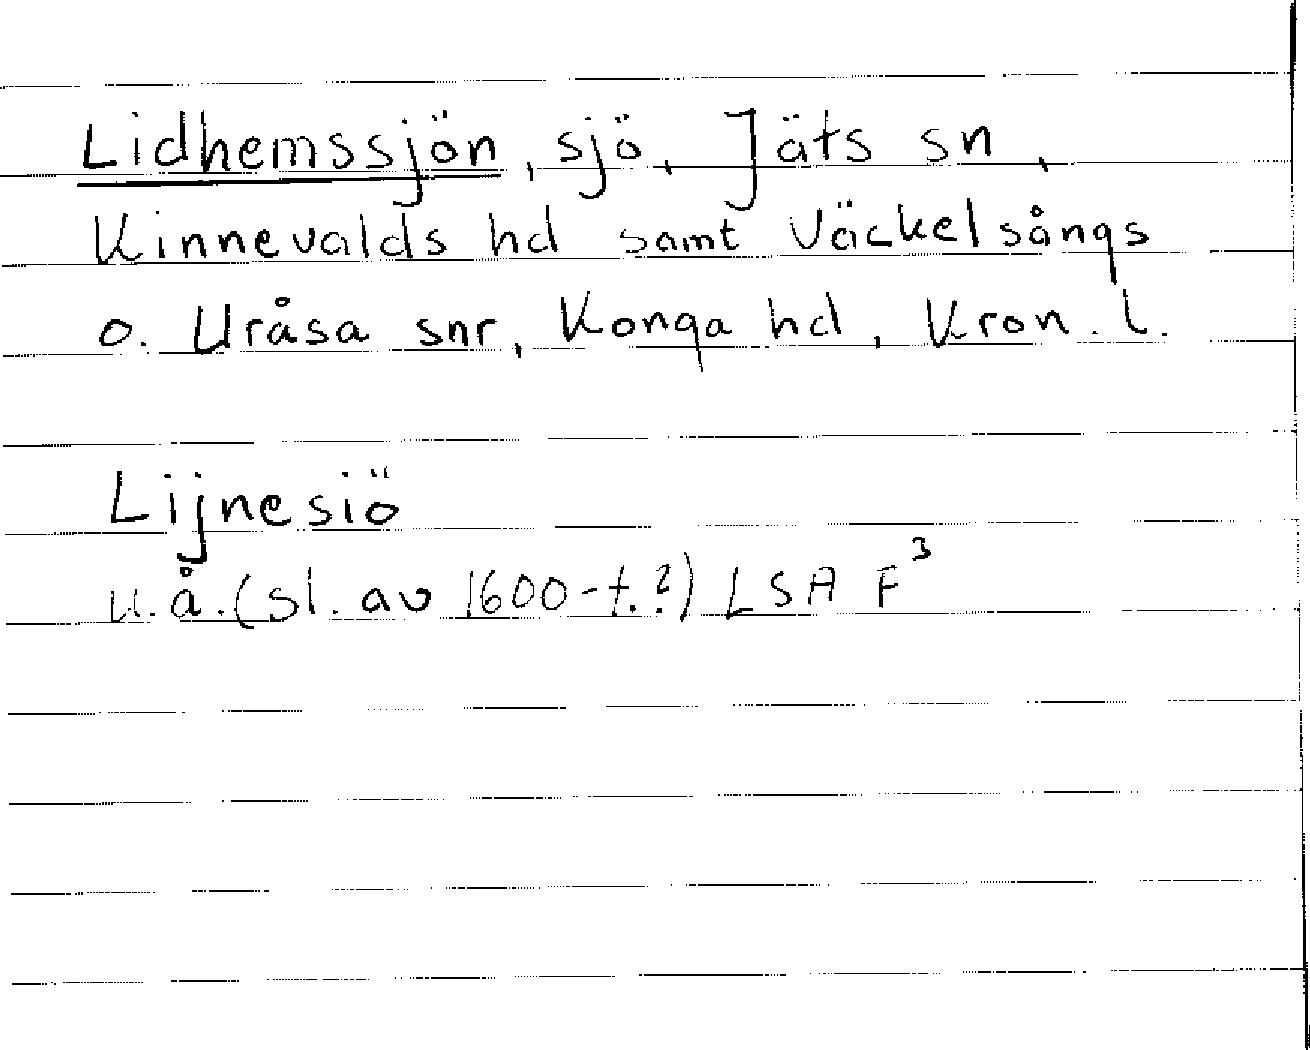 Lidhemssjön, sjö, Jäts sn,
Kinnevalds hd samt Väckelsångs
o. Uråsa snr, Konga hd, Kron. l.
Lijnesiö
u.å. (sl. av 1600-t.?) LSA F³